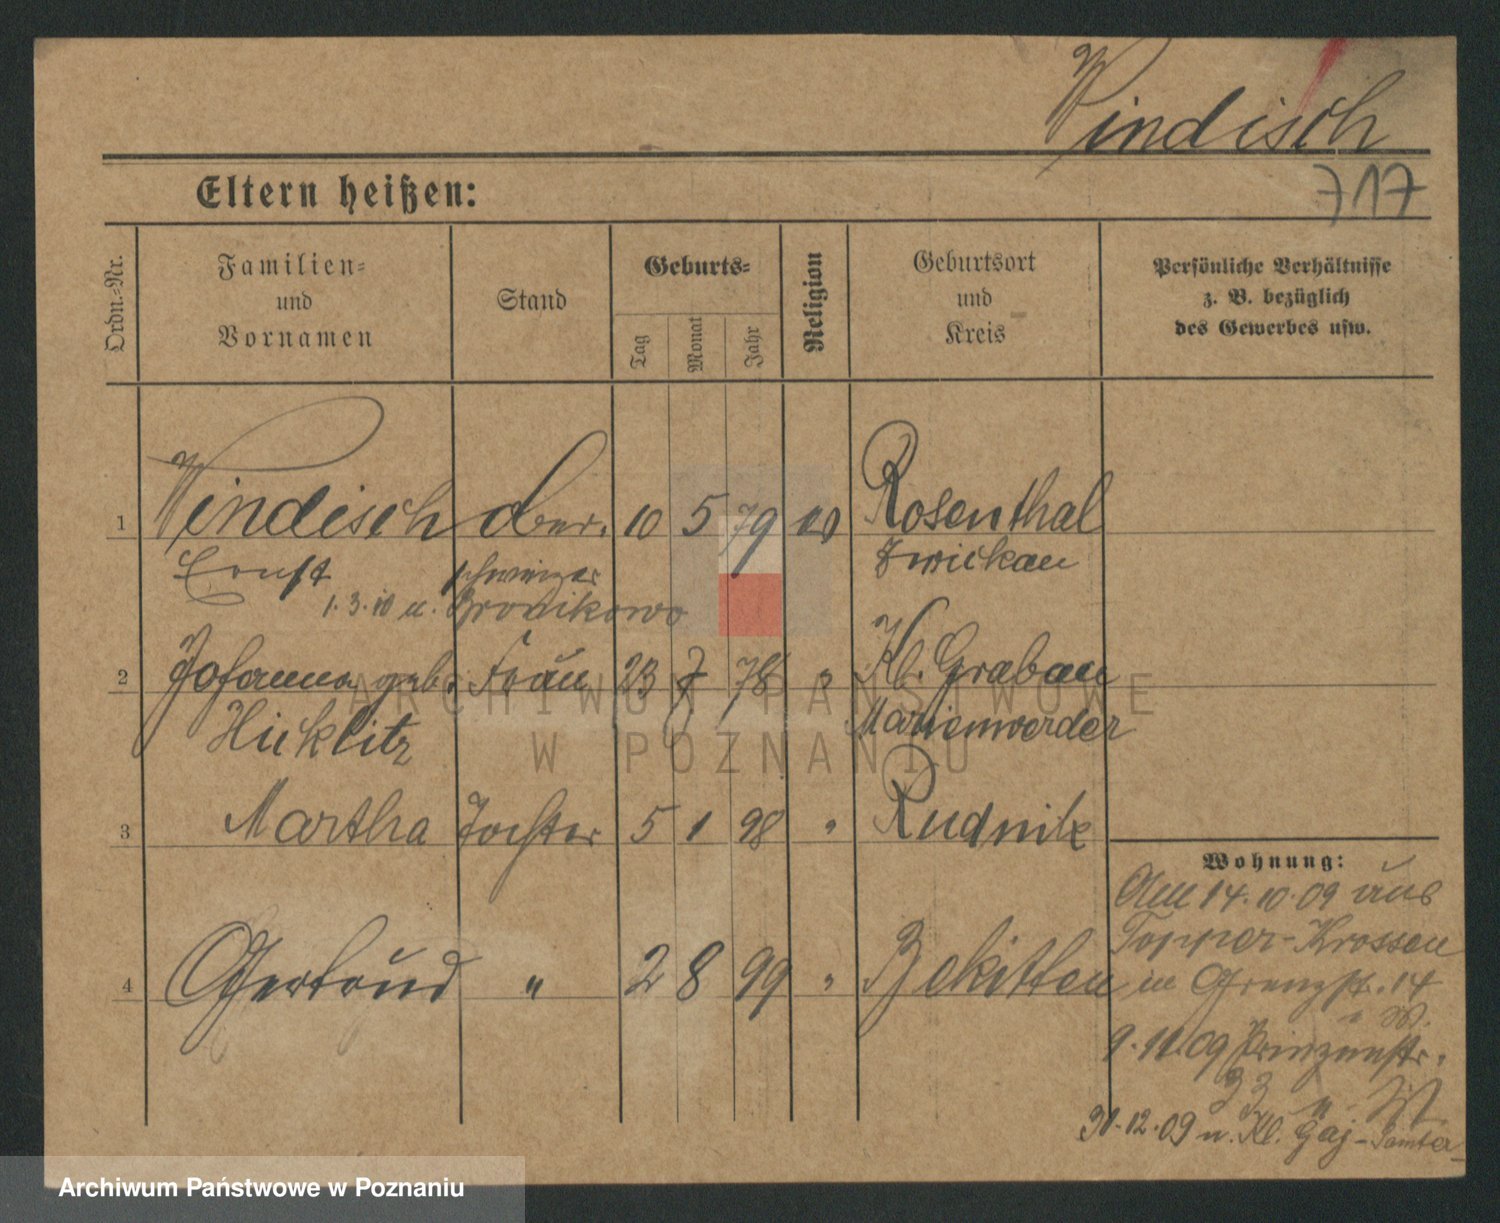 Windisch
717
Eltern heißen:
Ordn.-Nr.
Familien-
und
Vornamen
Stand
Geburts-
Tag
Monat
Jahr
Religion
Geburtsort
und
Kreis
Persönliche Verhältnisse
z. B. bezüglich
des Gewerbes usw.
1 Windisch Ober. 10 5 79 Rosenthal
Ernst schweizer Zwickau
1.3.10 n. Bronikowo
2 Johanna geb. Frau 23 7 78 " Kl. Grabau
Hicklitz Marienwerder
3 Martha Tochter 5 1 98 " Rudnik
4 Gertrud " 2 8 99 " Bekitten
Wohnung:
Am 14.10.09 aus
Topper-Krossen
in Grenzstr. 14
9.11.09 Prinzenstr.
31.12.09 n. Kl. Gaj-Samter
ARCHIWUM PAŃSTWOWE
W POZNANIU
Archiwum Państwowe w Poznaniu